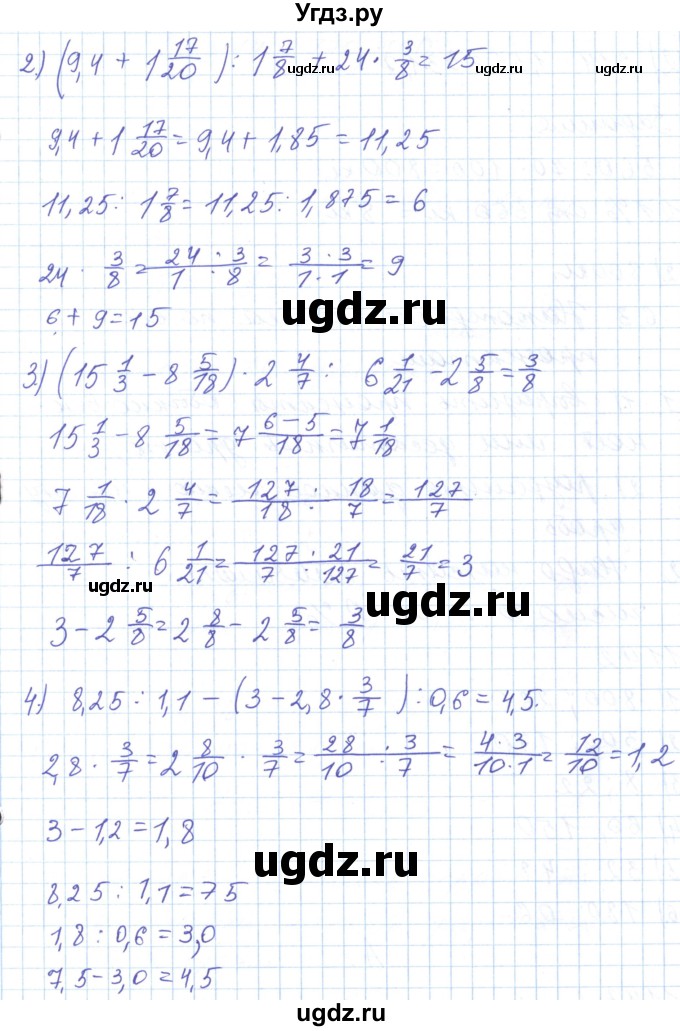 Угдз.ру
2) (9,4 + 1 17/20) : 1 7/8 + 24 · 3/8 = 15
ugdz.ru ugdz.ru
9,4 + 1 17/20 = 9,4 + 1,85 = 11,25
11,25 : 1 7/8 = 11,25 : 1,875 = 6
24 · 3/8 = 24 · 3 / 1 · 8 = 3 · 3 / 1 · 1 = 9
6 + 9 = 15
ugdz.ru
3) (15 1/3 - 8 5/18) · 2 4/7 : 6 1/21 - 2 5/8 = 3/8
15 1/3 - 8 5/18 = 7 6-5/18 = 7 1/18
7 1/18 · 2 4/7 = 127 · 18 / 18 · 7 = 127/7
127/7 : 6 1/21 = 127 · 21 / 7 · 127 = 21/7 = 3
ugdz.ru ugdz.ru
3 - 2 5/8 = 2 8/8 - 2 5/8 = 3/8
4) 8,25 : 1,1 - (3 - 2,8 · 3/7) : 0,6 = 4,5.
2,8 · 3/7 = 2 8/10 · 3/7 = 28 · 3 / 10 · 7 = 4 · 3 / 10 · 1 = 12/10 = 1,2
3 - 1,2 = 1,8
ugdz.ru
8,25 : 1,1 = 75
1,8 : 0,6 = 3,0
7,5 - 3,0 = 4,5
ugdz.ru